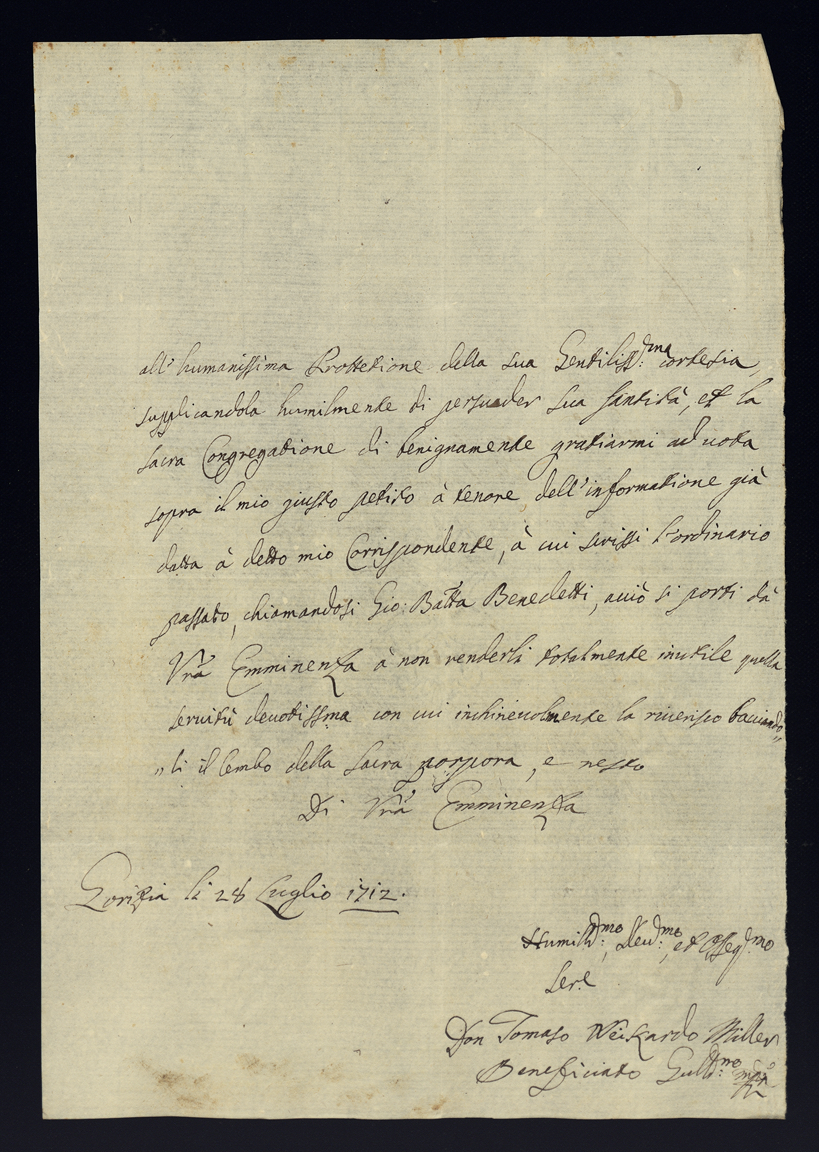 all' humanissima Prottetione della sua Gentiliss:ma cortesia,
supplicandola humilmente di persuader sua santità, et la
sacra Congregatione di benignamente gratiarmi ad uota
sopra il mio giusto petito à tenore dell'informatione già
datta à detto mio Corrispondente, à cui scrissi l'ordinario
passato, chiamandosi Gio: Batta Benedetti, acciò si porti dà
Vrã Emminenza à non renderli totalmente inutile quella
seruitù deuotissima con cui inchineuolmente la riuerisco bacciando„
„li il lembo della sacra porpora, e resto
Di Vrã Emminenza
Gorizia li 28 Luglio 1712.
Humill:mo, Deu:mo, et Osseq:mo
Ser:e
Don Tomaso Weikardo Miller
Beneficiato